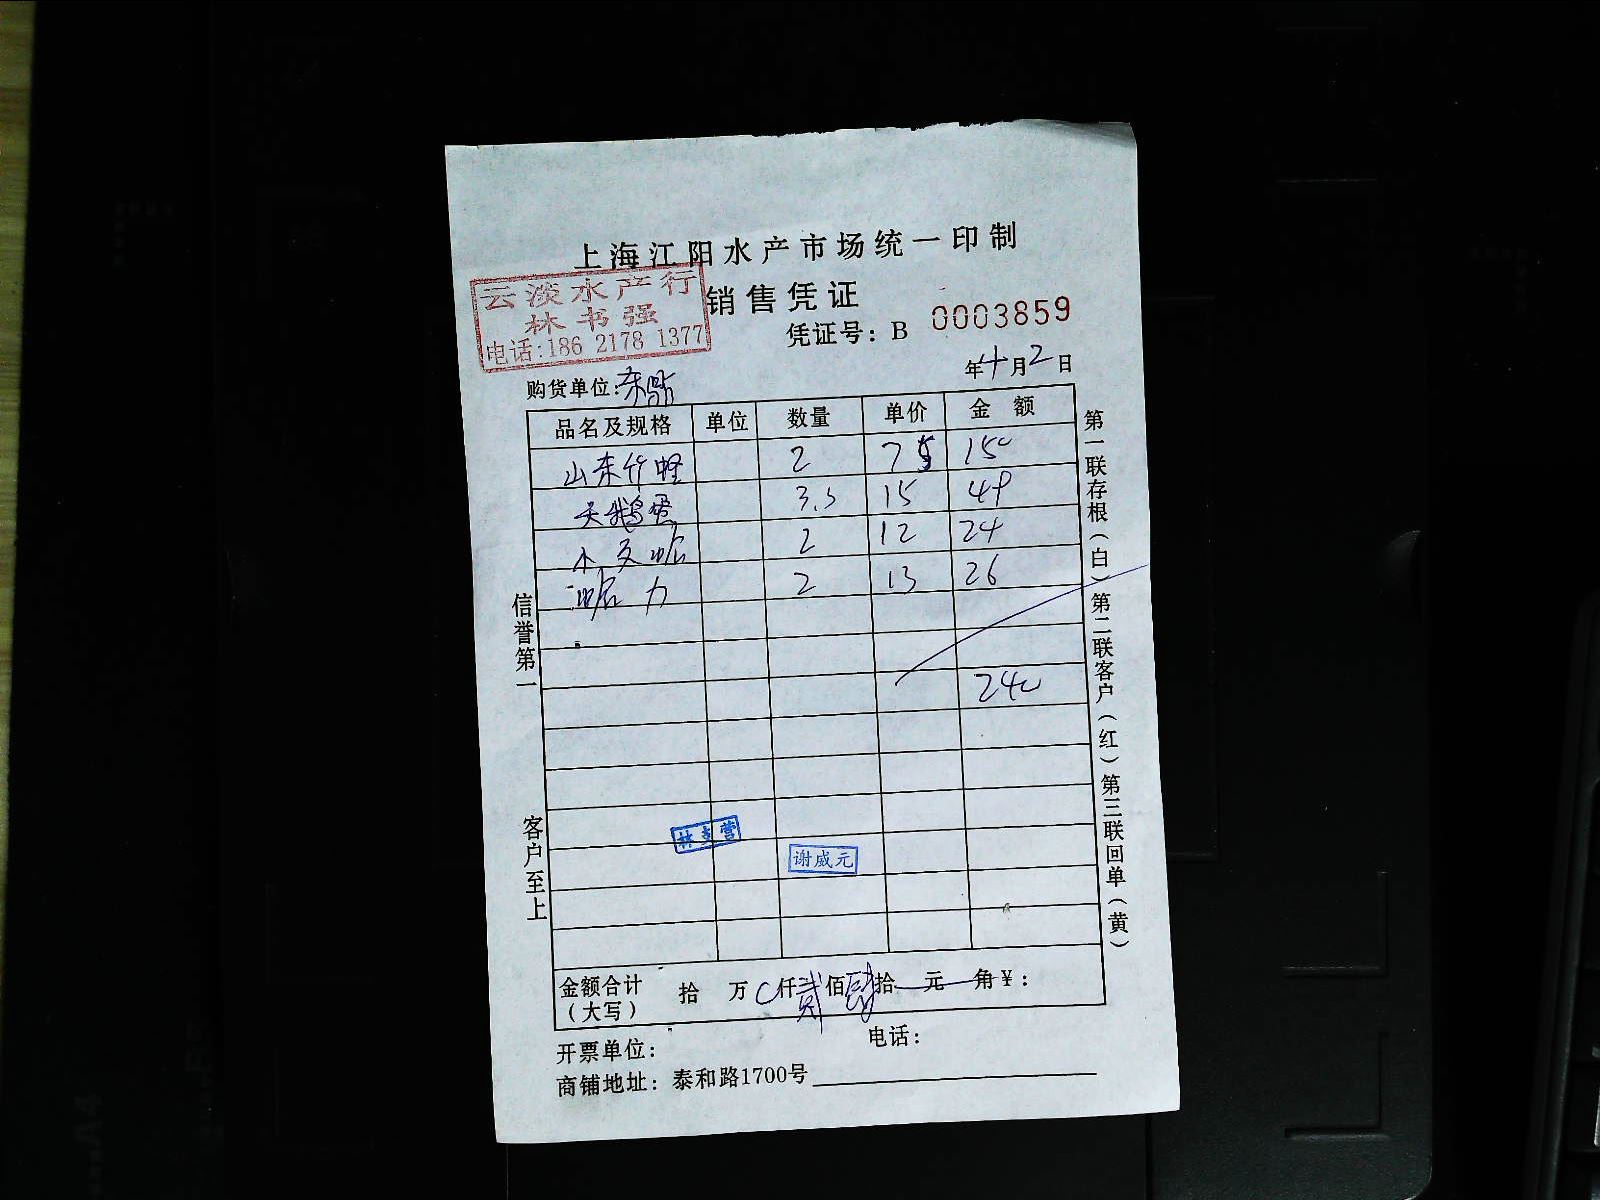 上海江阳水产市场统一印制
云淡水产行
林书强
电话:186 2178 1377
销售凭证
凭证号：B 0003859
年4月2日
购货单位:东鼎
品名及规格 单位 数量 单价 金额
山东竹蛏 2 75 150
天鹅蛋 3.5 15 49
2 12 24
2 13 26
240
信誉第一
客户至上
第一联存根（白）第二联客户（红）第三联回单（黄）
谢威元
金额合计 拾 万 仟贰佰肆拾 元 角¥：
（大写）
开票单位：
电话：
商铺地址：泰和路1700号